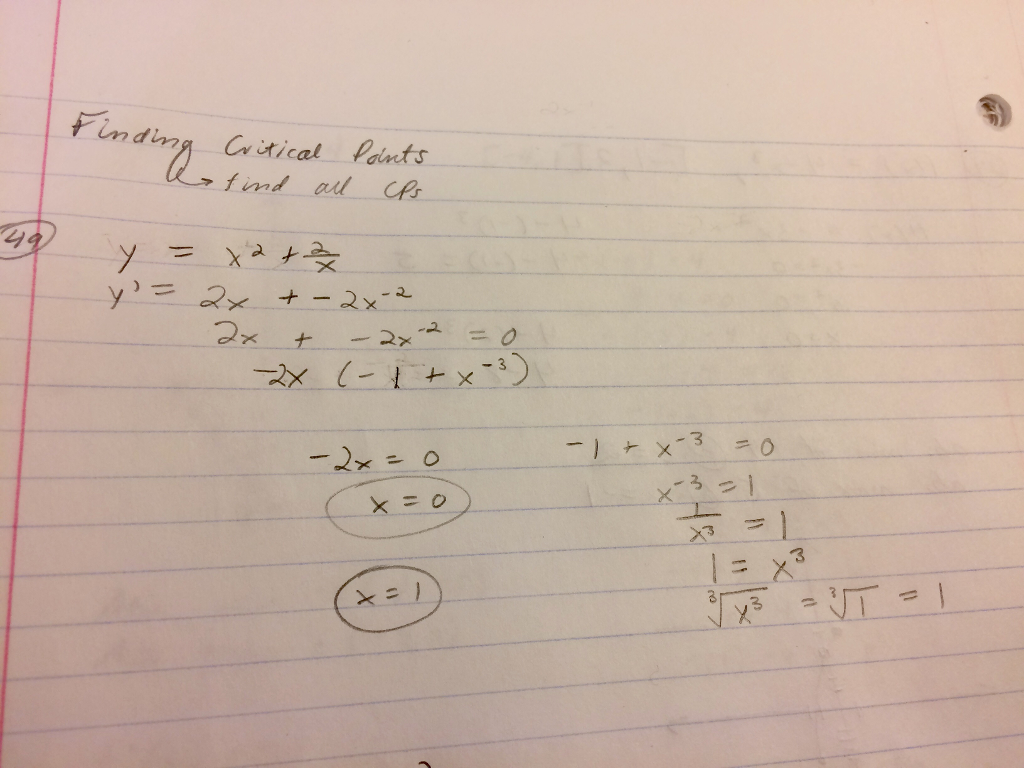 Finding Critical Points
↳ find all CPs
49
y = x² + 2/x
y' = 2x + -2x⁻²
2x + -2x⁻² = 0
-2x (-1 + x⁻³)
-2x = 0
x = 0
x = 1
-1 + x⁻³ = 0
x⁻³ = 1
1/x³ = 1
1 = x³
∛x³ = ∛1 = 1